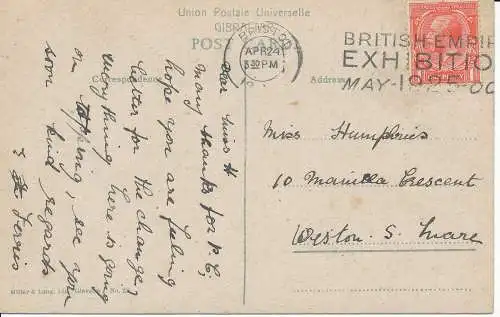 Union Postale Universelle
GIBRALTAR
POST CARD
Correspondence
Address
BRISTOL
APR 24
3.30 PM
BRITISH EMPIRE
EXHIBITION
MAY-1925-OC
Dear Miss H
many thanks for P.C,
hope you are feeling
better for the change,
everything here is going
on topping, see you
soon kind regards
Ferris
Miss Humphries
10 Manilla Crescent
Weston. S. Mare
Millar & Lang, Ltd., Glasgow. No.